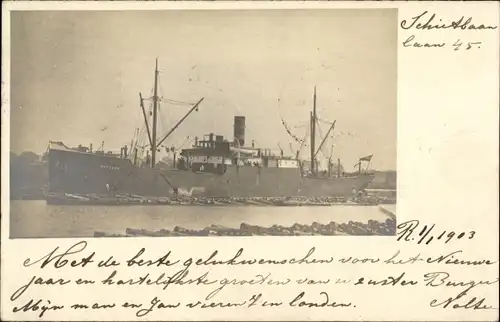 Schietbaan
laan 45.
R. 1/1 1903
Met de beste gelukwenschen voor het Nieuwe
jaar en hartelijkste groeten van uw zuster
Mijn man en Jan vieren 't in londen. Nolte